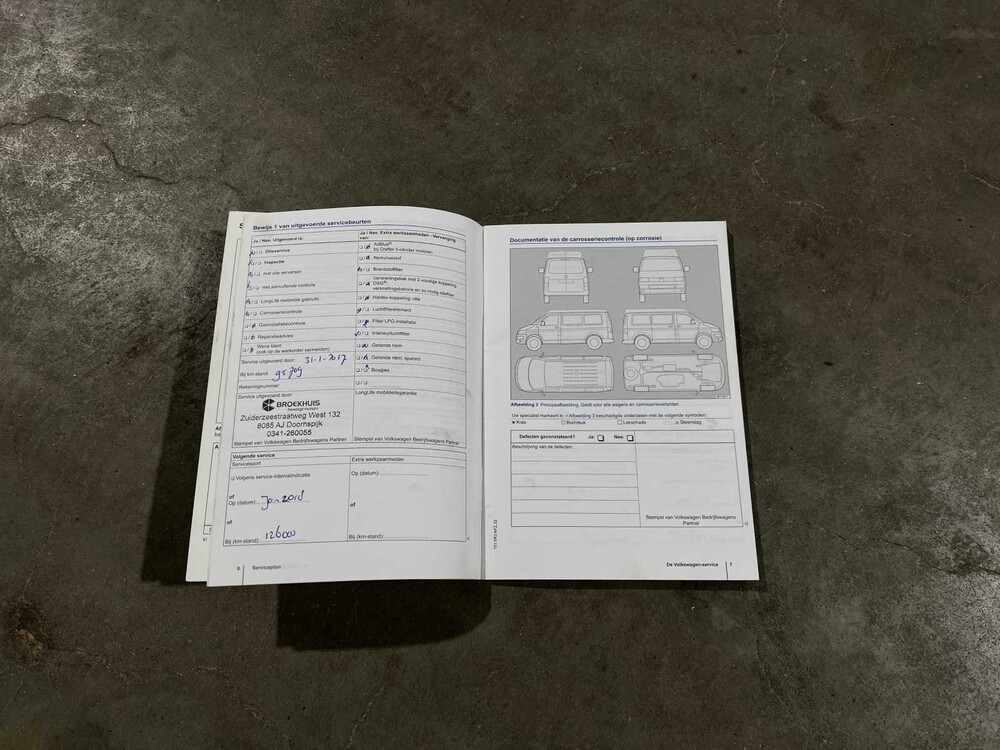 Bewijs 1 van uitgevoerde servicebeurten
Ja / Nee. Uitgevoerd is:
Olieservice
Inspectie
met olie verversen
met aanvullende controle
LongLife motorolie gebruikt
Carrosseriecontrole
Gasinstallatiecontrole
Reparatieadvies
Wens klant
(ook op de werkorder vermelden)
Service uitgevoerd door: 31-1-2017
Bij km-stand:
Rekeningnummer:
Service uitgevoerd door:
BROEKHUIS
Zuiderzeestraatweg West 132
8085 AJ Doornspijk
0341-260055
Stempel van Volkswagen Bedrijfswagens Partner
Ja / Nee. Extra werkzaamheden - Vervanging
van:
AdBlue®
bij Crafter 5-cilinder motoren
Remvloeistof
Brandstoffilter
Versnellingsbak met 2-voudige koppeling
DSG®:
versnellingsbakolie en zo nodig oliefilter
Haldex-koppeling: olie
Luchtfilterelement
Filter LPG-installatie
Interieurluchtfilter
Getande riem
Getande riem, spanrol
Bougies
LongLife mobiliteitsgarantie:
Stempel van Volkswagen Bedrijfswagens Partner
Volgende service
Servicesoort
Volgens service-intervalindicatie
of
Op (datum): Jan 2018
of
Bij (km-stand): 126000
Extra werkzaamheden
Op (datum):
of
Bij (km-stand):
6 Serviceplan
Documentatie van de carrosseriecontrole (op corrosie)
Afbeelding 3 Principeafbeelding: Geldt voor alle wagens en carrosserievarianten.
Uw specialist markeert in ⇒ Afbeelding 3 beschadigde onderdelen met de volgende symbolen:
× Kras ○ Buil/deuk □ Lakschade △ Steenslag
Defecten geconstateerd? Ja: Nee:
Beschrijving van de defecten:
Stempel van Volkswagen Bedrijfswagens
Partner
De Volkswagen-service 7